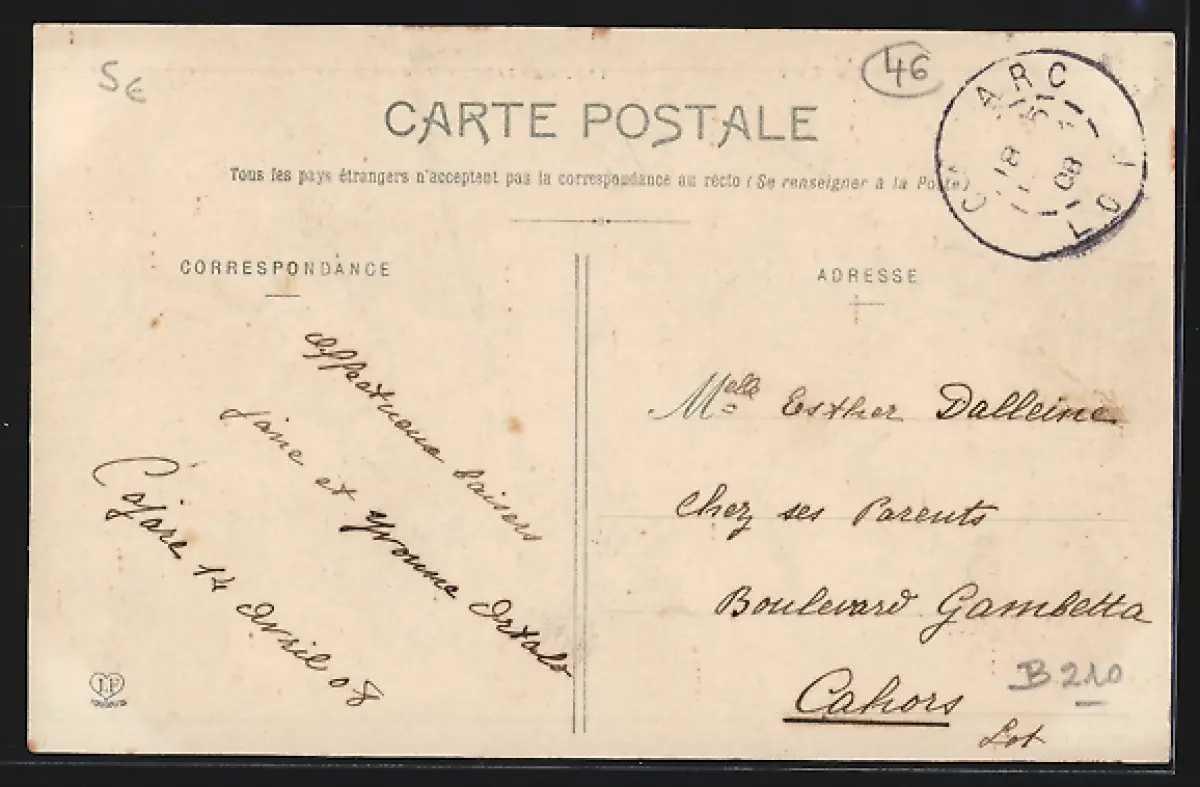 5€
46
CAJARC
LOT
18
08
CARTE POSTALE
Tous les pays étrangers n'acceptent pas la correspondance au recto (Se renseigner à la Poste)
CORRESPONDANCE
affectueux baisers
Jane et Yvonne Ortalo
Cajarc 14 avril 08
LF
ADRESSE
Melle Esther Dalleine
Chez ses Parents
Boulevard Gambetta
Cahors
Lot
B 210